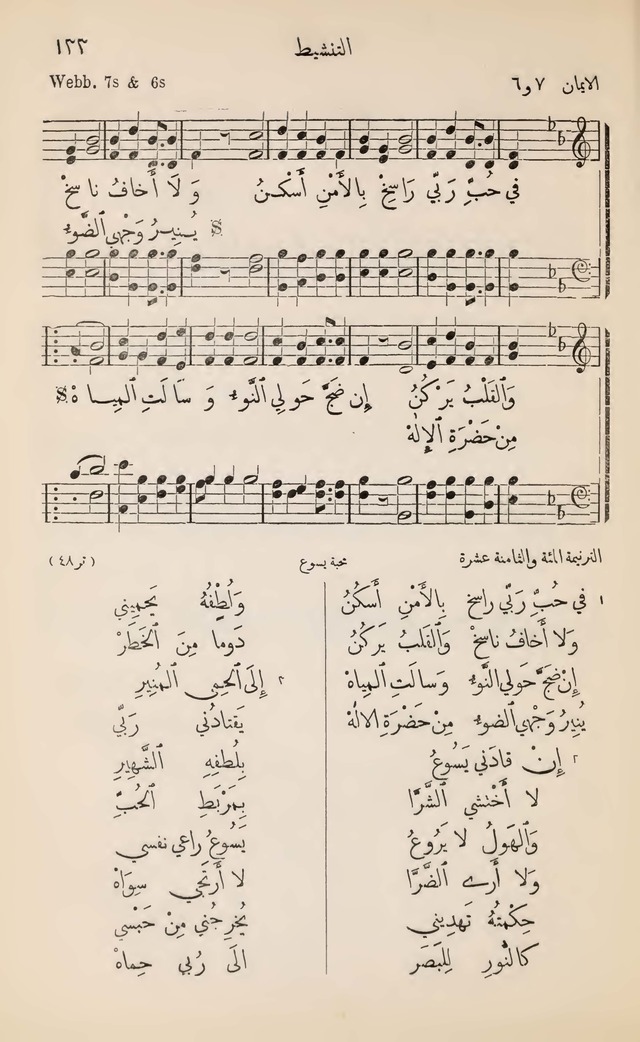 التنشيط ١٢٣
الايمان ٧ و٦ Webb. 7s & 6s
في حُبِّ رَبّي رَاسِخْ بِالأَمْنِ أَسْكُنُ وَ لَا أَخافُ نا سِخْ
𝄋 يُنِيرُ وَجْهِي ٱلضَّوءُ
وَٱلقَلْبُ يَرْكُنُ إِن ضَجَّ حَولِي ٱلنَّوءُ وَ سَا لَتِ ٱلمِيـا هْ 𝄋
مِنْ حَضْرَةِ ٱلإِلٰهْ
الترنيمة المائة والثامنة عشرة محبة يسوع (تر ٤٨)
١ في حُبِّ رَبّي راسِخ بِالأَمْنِ أَسكُنُ
وَلا أَخافُ ناسِخْ وَٱلقَلبُ يَركُنُ
إِنْ ضَجَّ حَولِي ٱلنَّوءُ وَسالَتِ ٱلمِياهْ
يُنِيرُ وَجْهِي ٱلضوءُ مِنْ حَضْرَةِ الالٰهْ
٢ إِنْ قادَني يَسُوعُ
لا أَخْتَشي ٱلشَّرَّا
وَٱلهَولُ لا يَرُوعُ
وَلا أَرے ٱلضَّرَّا
حِكْمتُهُ تَهدِيني
كالنُّورِ لِلبَصَر
وَلُطْفُهُ يَحمِيني
دَوما مِنَ ٱلخَطَرْ
٣ إِلَى ٱلحِمى ٱلمُنِيرِ
يَقتادُني رَبّي
بِلُطفِهِ ٱلشَّهِيرِ
بِمَرْبَطِ ٱلحُبِّ
يَسُوعُ راعي نفسي
لا أَرتَجي سِوَاهْ
يُخرِجُني مِنْ حَبْسي
الَى رُبي حِماهْ